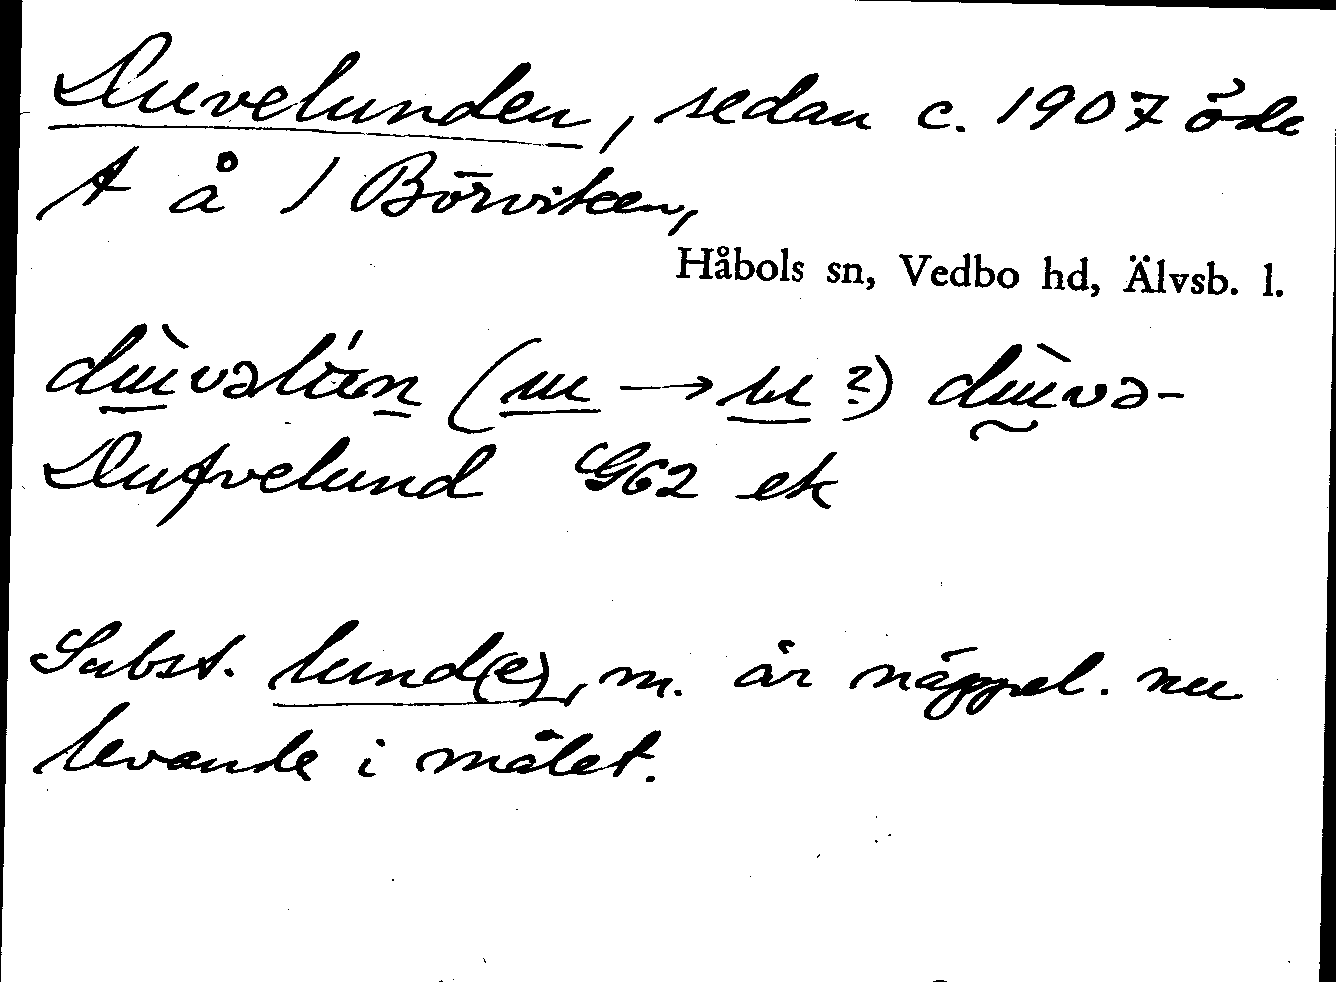 Duvelunden, sedan c. 1907 öde
t å 1 Börviken,
Håbols sn, Vedbo hd, Älvsb. l.
Dufvelund G62 ek
Subst. lund(e), m. är näppel. nu
levande i målet.